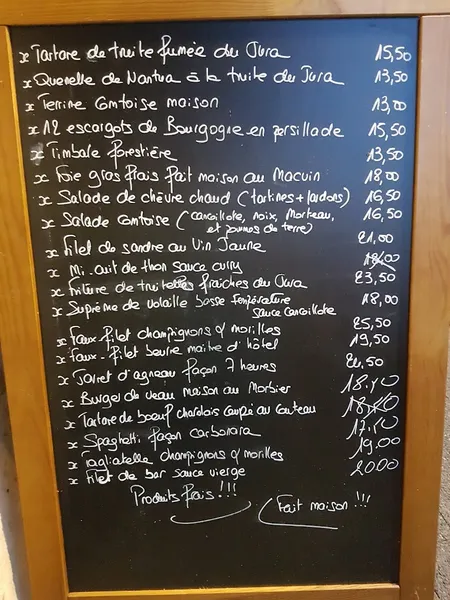 x Tartare de truite fumée du Jura 15,50
x Quenelle de Nantua à la truite du Jura 13,50
x Terrine comtoise maison 13,00
x 12 escargots de Bourgogne en persillade 15,50
x Timbale forestière 13,50
x Foie gras frais fait maison au Macvin 18,00
x Salade de chèvre chaud (tartines + lardons) 16,50
x Salade comtoise (cancoillote, noix, Morteau, 16,50
et pommes de terre)
x Filet de sandre au Vin Jaune 21,00
x Mi-cuit de thon sauce curry 18,00
x Friture de truitelles fraiches du Jura 23,50
x Suprême de volaille basse température 18,00
sauce cancoillote
x Faux filet champignons & morilles 25,50
x Faux-filet beurre maitre d'hôtel 19,50
x Jarret d'agneau façon 7 heures 21,50
x Burger de veau maison au Morbier
x Tartare de bœuf charolais coupé au couteau
x Spaghetti façon carbonara
x Tagliatelle champignons & morilles 19.00
x Filet de bar sauce vierge 20.00
Produits frais!!!
Fait maison!!!